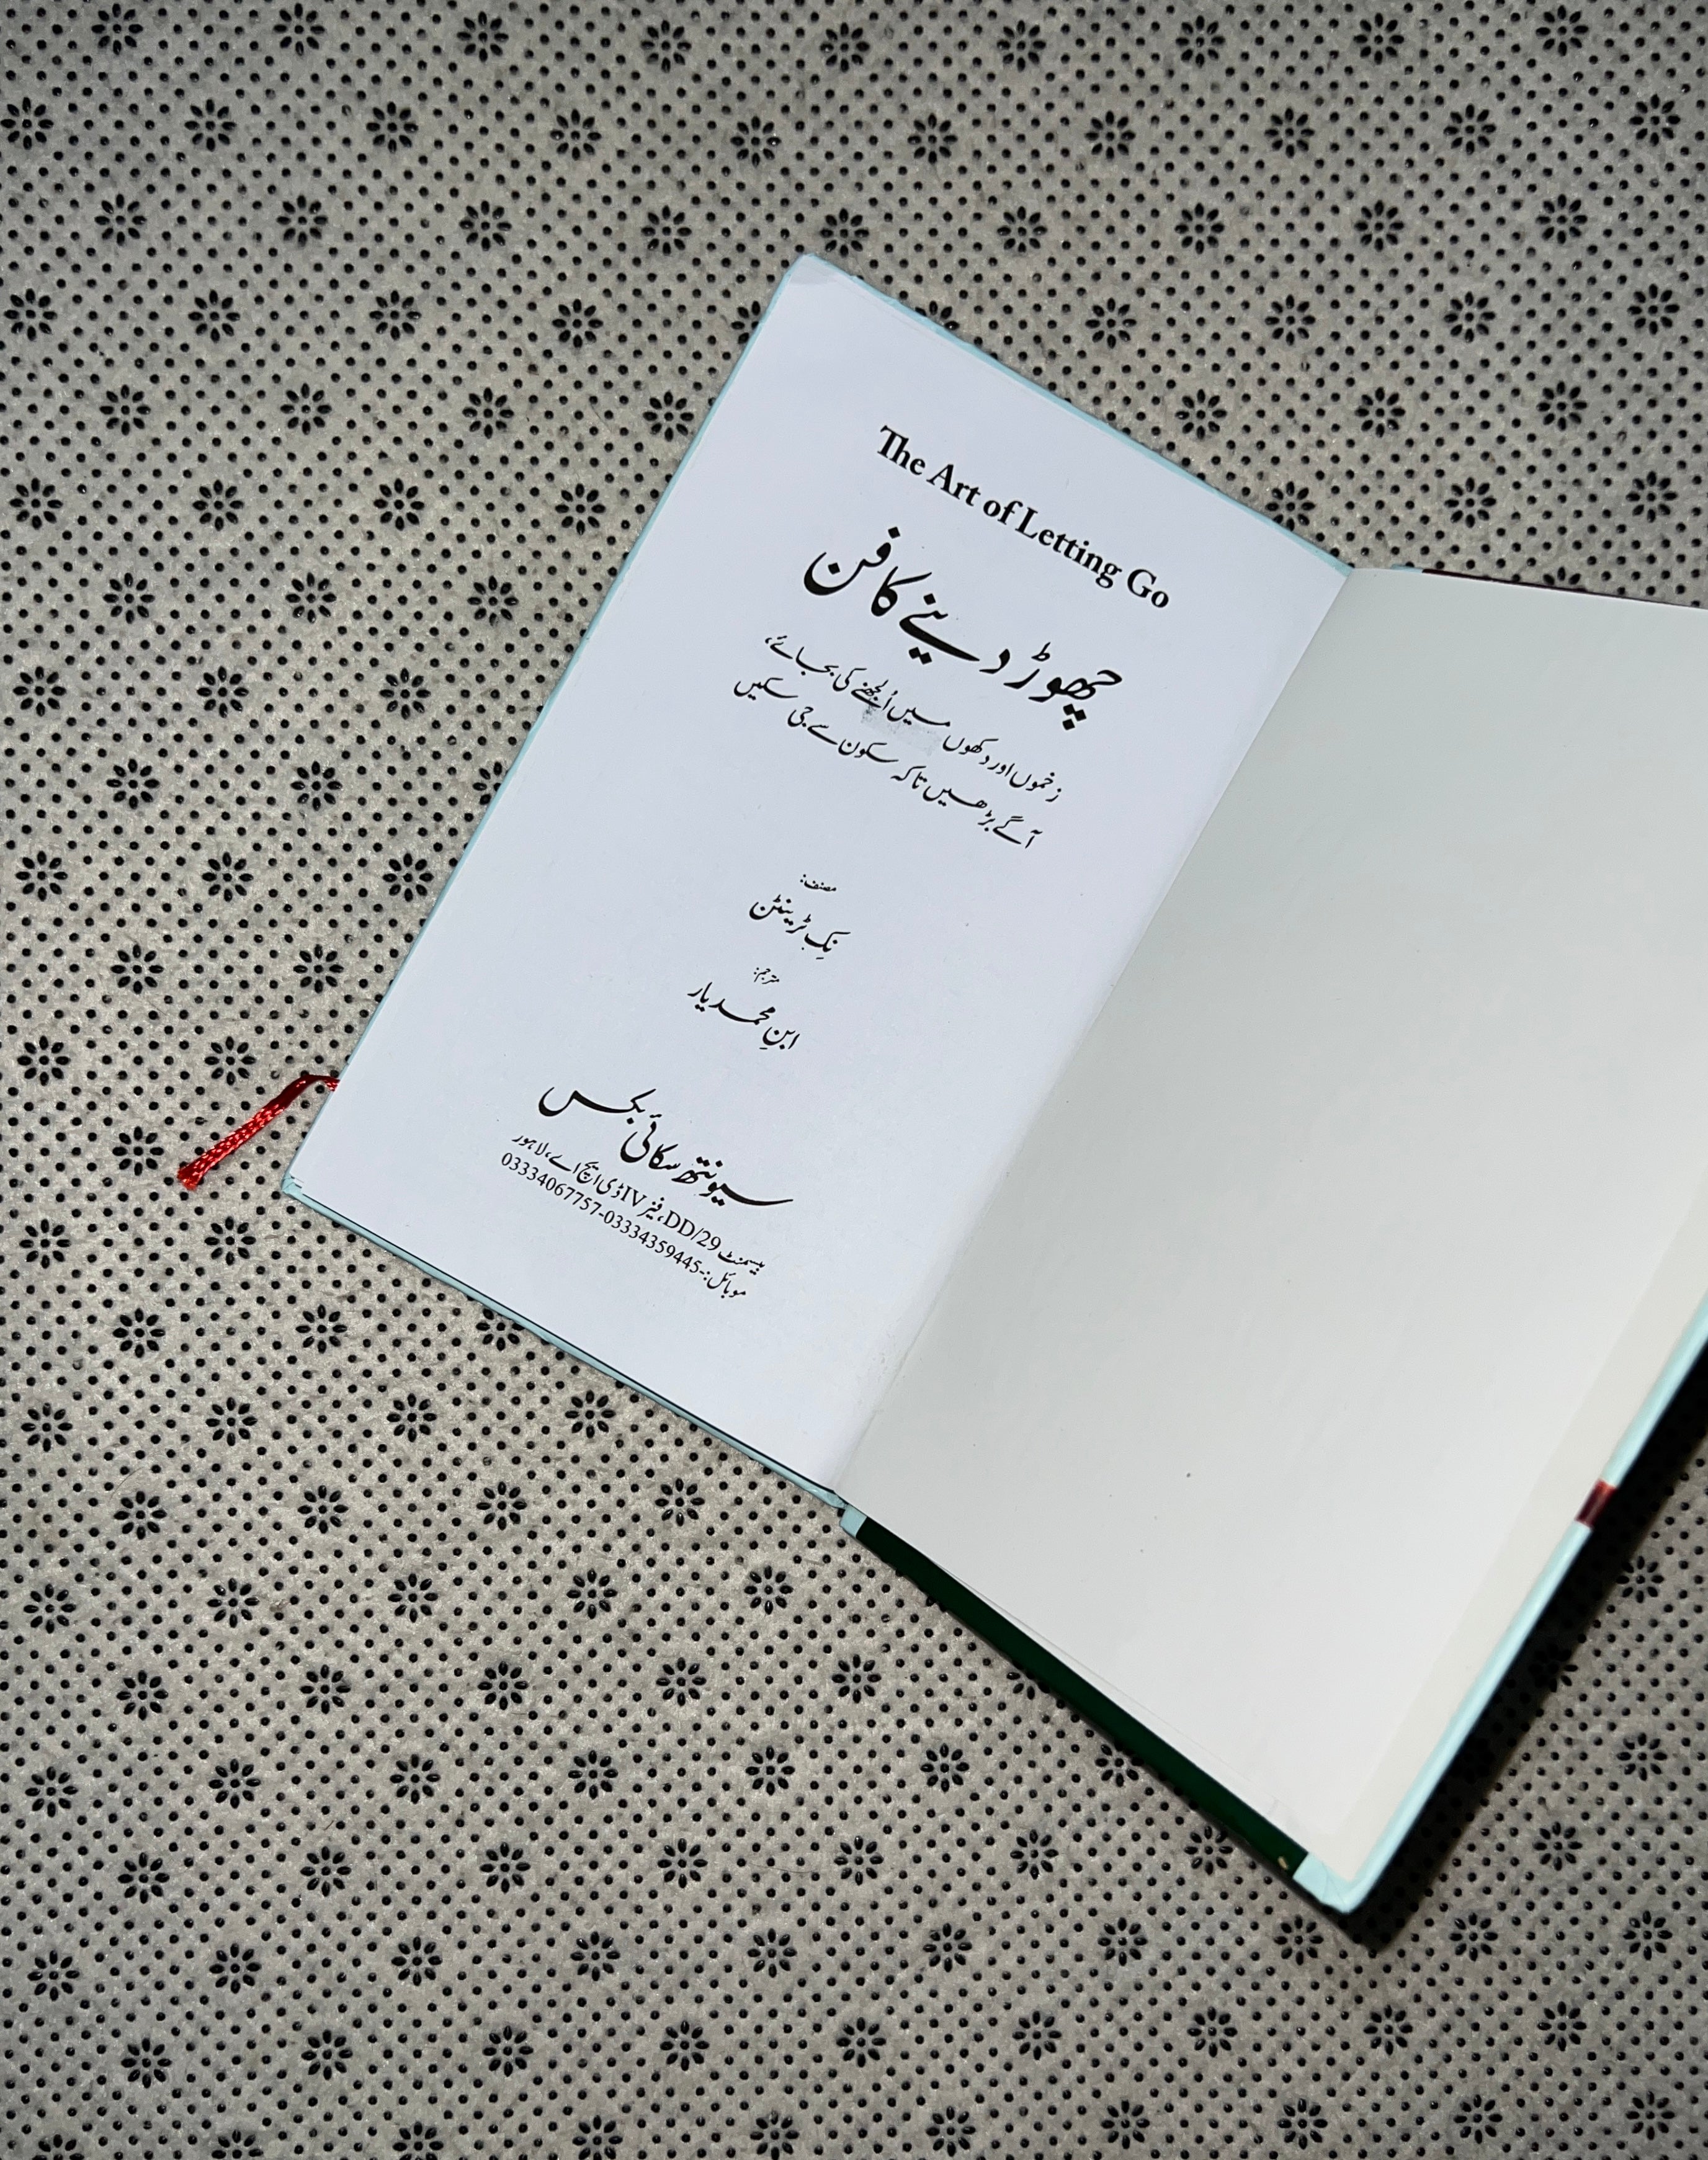 The Art of Letting Go
چھوڑ دینے کا فن
زخموں اور دکھوں میں اُلجھنے کی بجائے،
آگے بڑھیں تاکہ سکون سے جی سکیں
مصنف:
نِک ٹرینٹن
مترجم:
ابنِ محمد یار
سیونتھ سکائی بکس
بیسمنٹ DD/29، فیز IV ڈی ایچ اے، لاہور
موبائل:-03334359445-03334067757